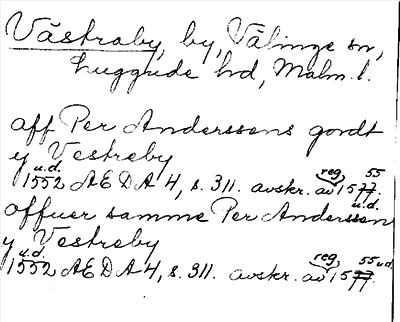 Västraby, by, Välinge sn,
Luggude hd, Malm. l.
aff Per Anderssens gordt
y Vestreby
u.d. reg. 55
1552 AEDA 4, s. 311. avskr. av 1577.
u.d.
offuer samme Per Anderssen
y Vestreby
u.d. reg. 55 u.d.
1552 AEDA 4, s. 311. avskr. av 1577.